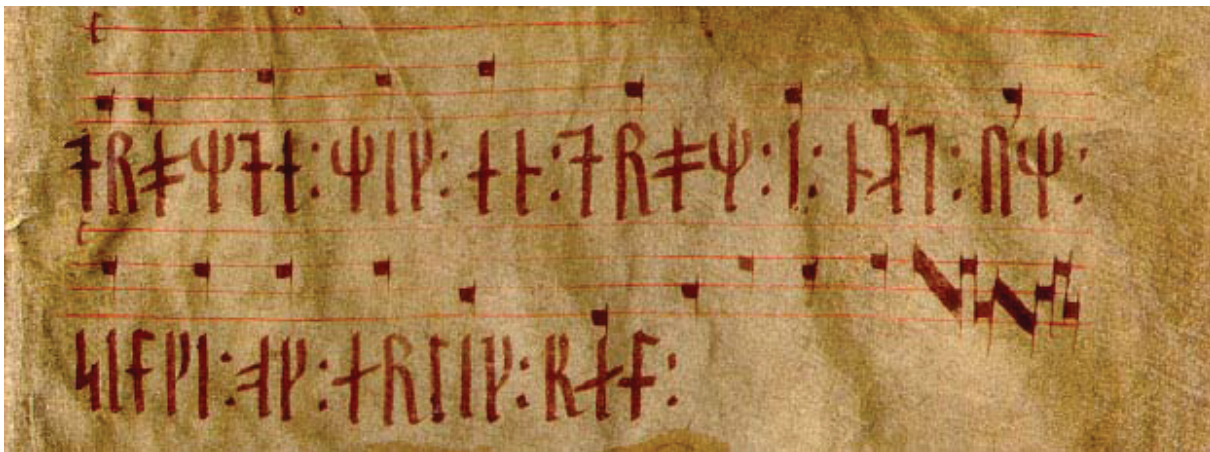 ᛑᚱᚯᛘᛑᛅ᛬ᛘᛁᚴ᛬ᛅᚿ᛬ᛑᚱᚯᛘ᛬ᛁ᛬ᚿᛆᛐ᛬ᚢᛘ᛬
ᛋᛁᛚᚴᛁ᛬ᚮᚴ᛬ᛅᚱᛚᛁᚴ᛬ᛕᛅᛚ᛬